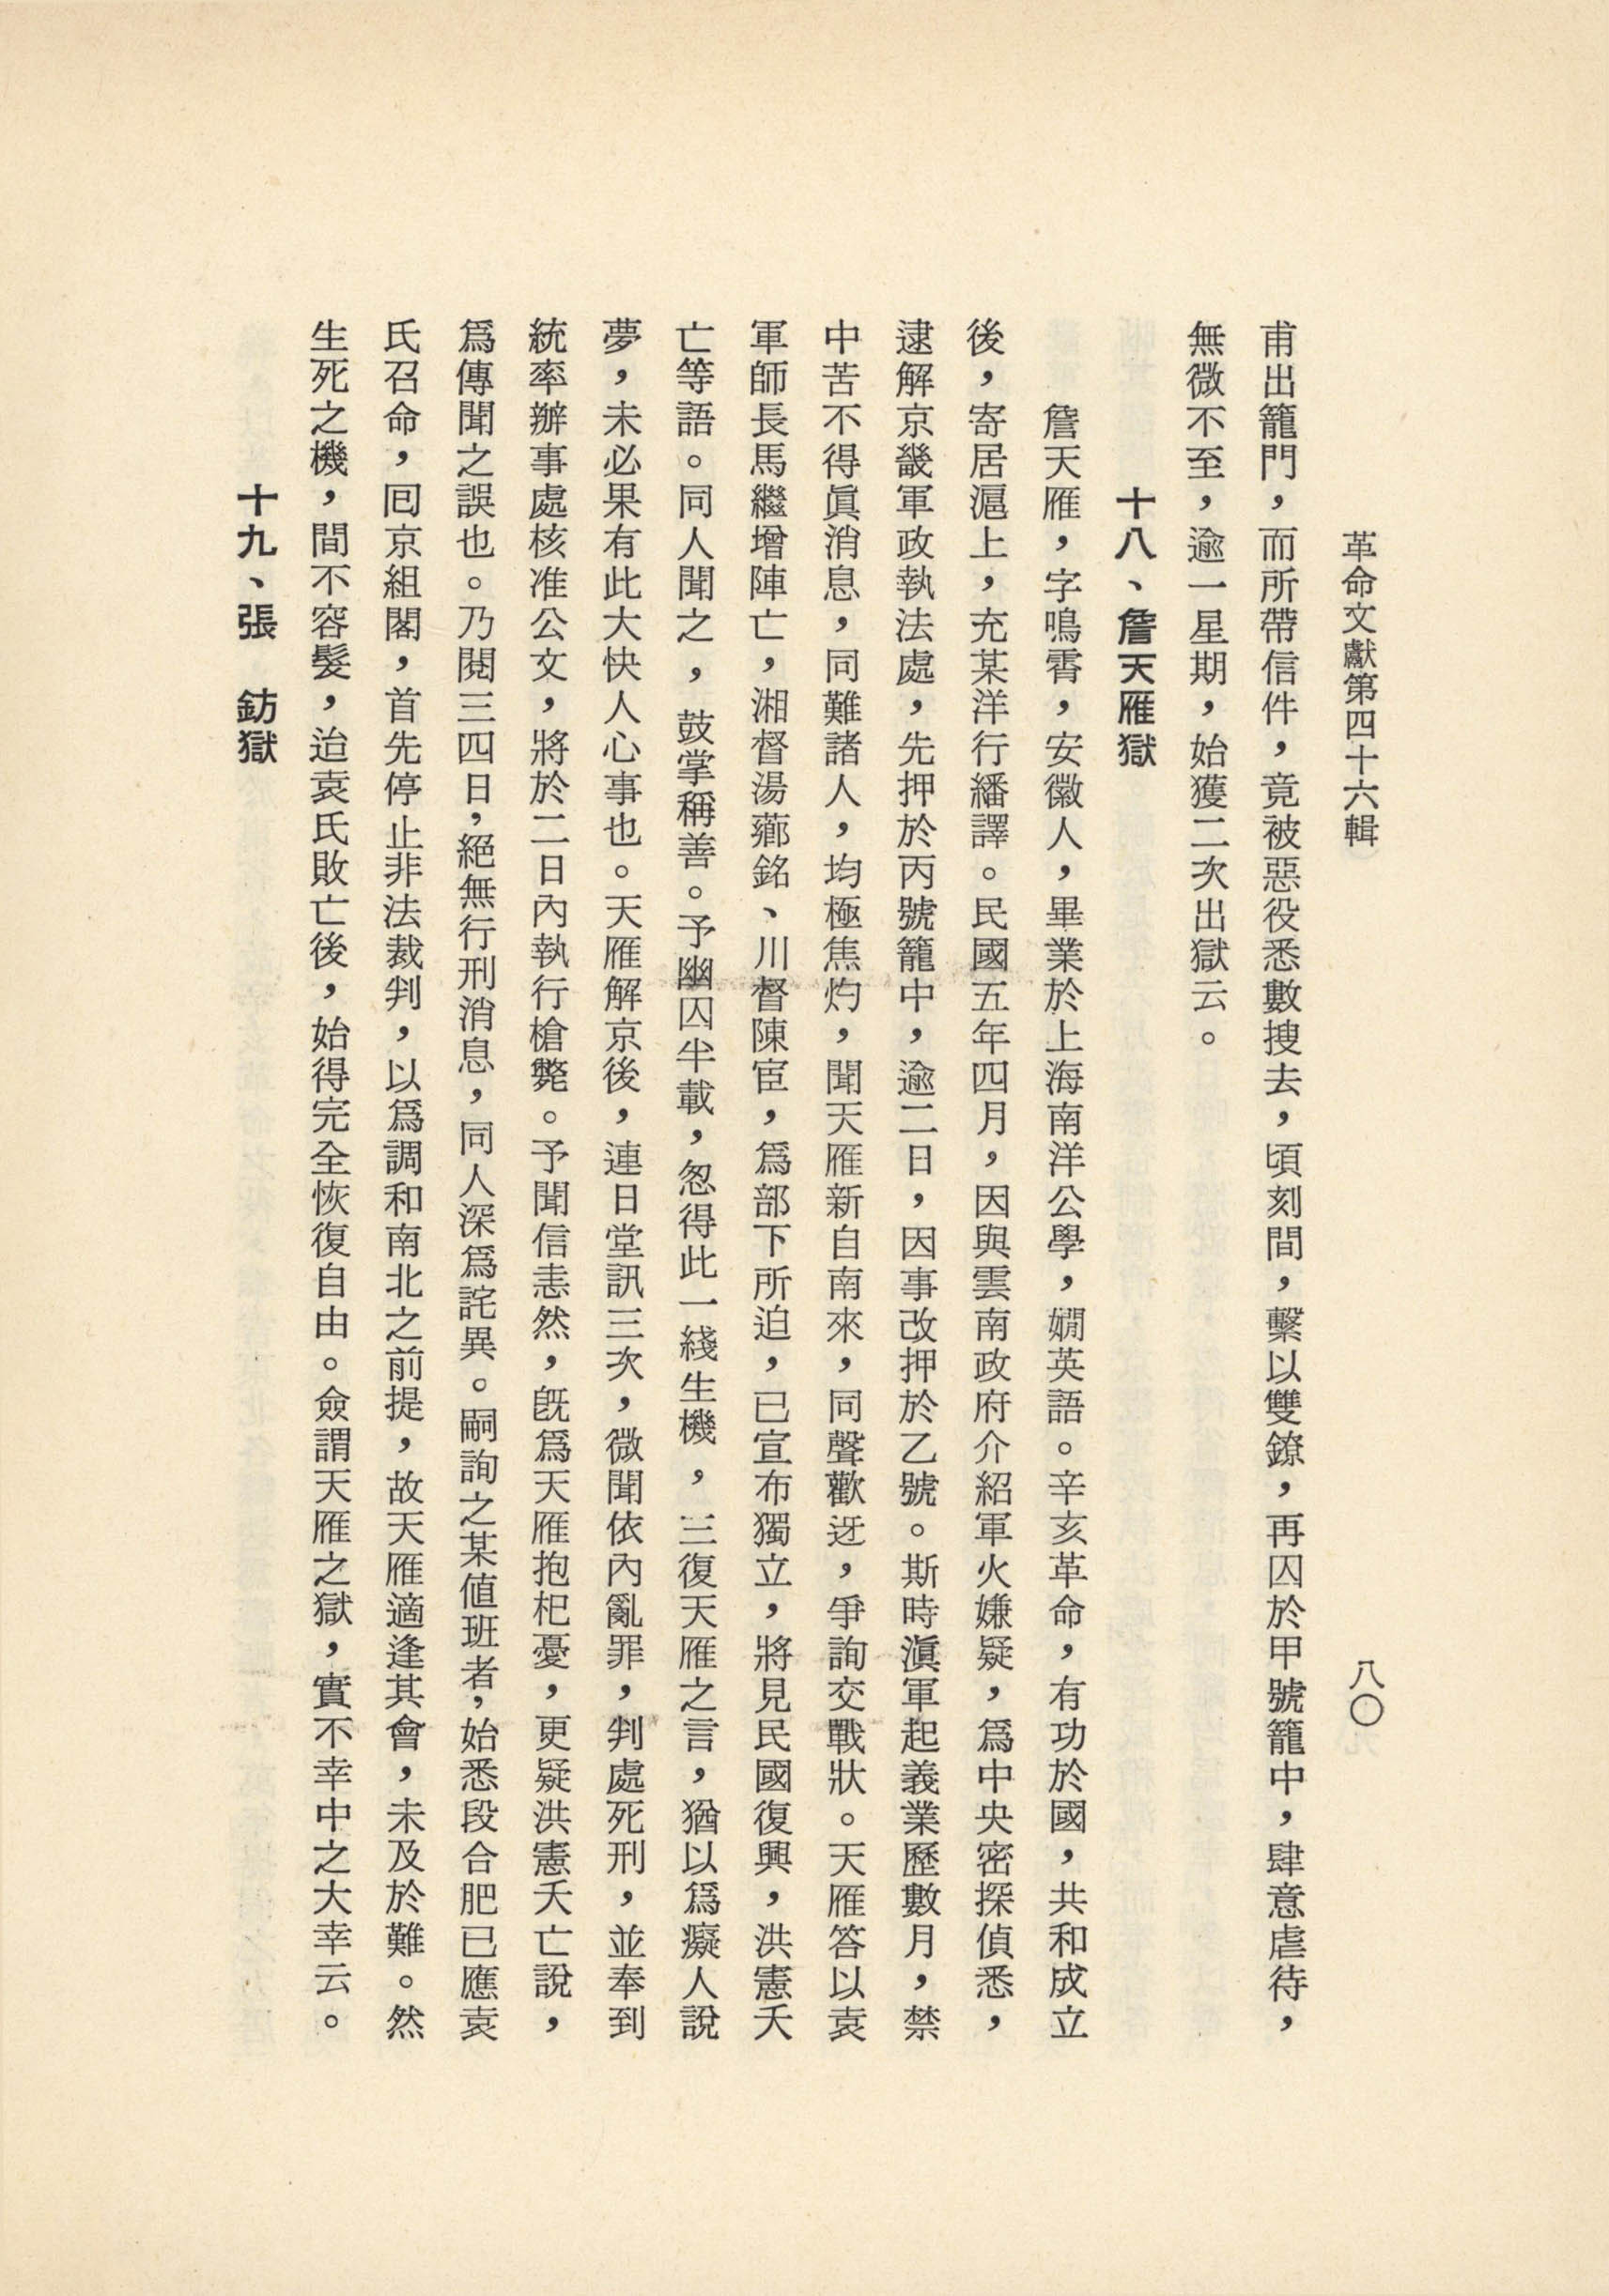 革命文獻第四十六輯
八〇
甫出籠門，而所帶信件，竟被惡役悉數搜去，頃刻間，繫以雙鐐，再囚於甲號籠中，肆意虐待，
無微不至，逾一星期，始獲二次出獄云。
十八、詹天雁獄
詹天雁，字鳴霄，安徽人，畢業於上海南洋公學，嫺英語。辛亥革命，有功於國，共和成立
後，寄居滬上，充某洋行繙譯。民國五年四月，因與雲南政府介紹軍火嫌疑，爲中央密探偵悉，
逮解京畿軍政執法處，先押於丙號籠中，逾二日，因事改押於乙號。斯時滇軍起義業歷數月，禁
中苦不得眞消息，同難諸人，均極焦灼，聞天雁新自南來，同聲歡迓，爭詢交戰狀。天雁答以袁
軍師長馬繼增陣亡，湘督湯薌銘、川督陳宧，爲部下所迫，已宣布獨立，將見民國復興，洪憲夭
亡等語。同人聞之，鼓掌稱善。予幽囚半載，忽得此一綫生機，三復天雁之言，猶以爲癡人說
夢，未必果有此大快人心事也。天雁解京後，連日堂訊三次，微聞依內亂罪，判處死刑，並奉到
統率辦事處核准公文，將於二日內執行槍斃。予聞信恚然，旣爲天雁抱杞憂，更疑洪憲夭亡說，
爲傳聞之誤也。乃閱三四日，絕無行刑消息，同人深爲詫異。嗣詢之某値班者，始悉段合肥已應袁
氏召命，囘京組閣，首先停止非法裁判，以爲調和南北之前提，故天雁適逢其會，未及於難。然
生死之機，間不容髮，迨袁氏敗亡後，始得完全恢復自由。僉謂天雁之獄，實不幸中之大幸云。
十九、張　鈁獄